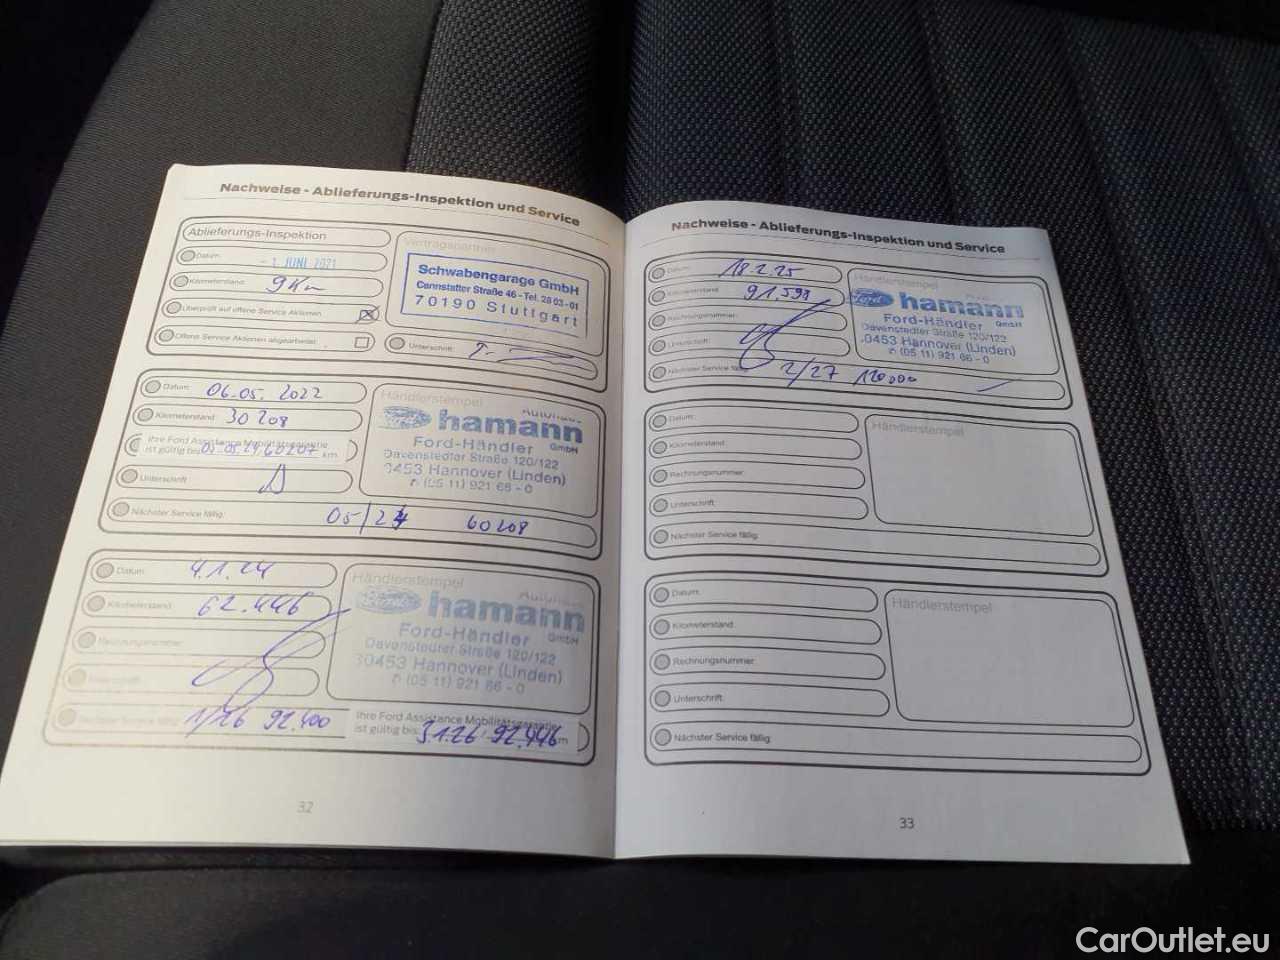 Nachweise - Ablieferungs-Inspektion und Service
Ablieferungs-Inspektion
Datum: - 1. JUNI 2021
Kilometerstand: 9 km
Überprüft auf offene Service Aktionen
Offene Service Aktionen abgearbeitet
Vertragspartner
Schwabengarage GmbH
Cannstatter Straße 46 - Tel. 28 03-01
70190 Stuttgart
Unterschrift:
Datum: 06.05.2022
Kilometerstand: 30208
Ihre Ford Assistance Mobilitätsgarantie
ist gültig bis: 05.05.24 60207 km
Unterschrift
Nächster Service fällig: 05/24 60208
Händlerstempel
Autohaus
Ford hamann
GmbH
Ford-Händler
Davenstedter Straße 120/122
30453 Hannover (Linden)
✆ (05 11) 921 66 - 0
Datum: 4.1.24
Kilometerstand: 62.446
Rechnungsnummer:
Unterschrift:
Nächster Service fällig: 1/26 92.400
Händlerstempel
Autohaus
hamann
GmbH
Ford-Händler
Davenstedter Straße 120/122
30453 Hannover (Linden)
✆ (05 11) 921 66 - 0
Ihre Ford Assistance Mobilitätsgarantie
ist gültig bis: 3.1.26 92.446 km
32
Nachweise - Ablieferungs-Inspektion und Service
Datum: 18.2.25
Kilometerstand: 91.598
Rechnungsnummer:
Unterschrift:
Nächster Service fällig: 2/27 120000
Händlerstempel
Ford hamann
GmbH
Ford-Händler
Davenstedter Straße 120/122
30453 Hannover (Linden)
✆ (05 11) 921 66 - 0
Datum:
Kilometerstand:
Rechnungsnummer:
Unterschrift:
Nächster Service fällig:
Händlerstempel
Datum:
Kilometerstand:
Rechnungsnummer:
Unterschrift:
Nächster Service fällig:
Händlerstempel
33
CarOutlet.eu